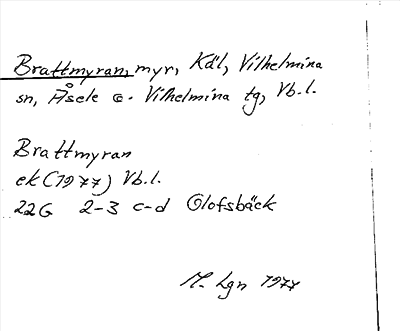 Brattmyran, myr, Käl, Vilhelmina
sn, Åsele o. Vilhelmina tg, Vb.l.
Brattmyran
ek (1977) Vb.l.
22G 2-3 c-d Olofsbäck
M. Lgn 1977